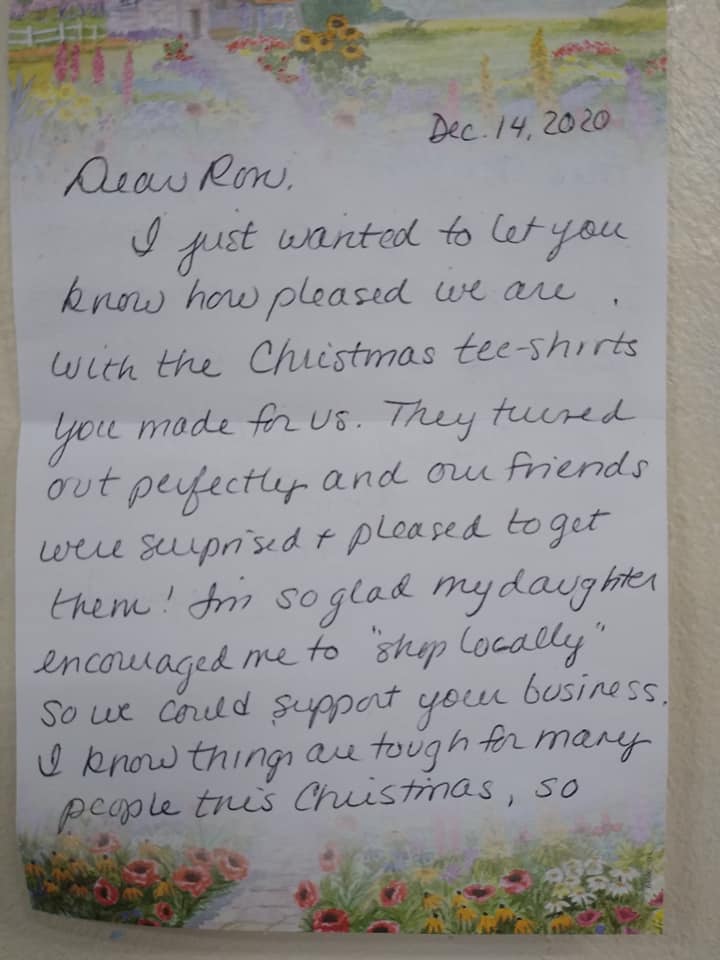 Dec. 14, 2020
Dear Ron,
I just wanted to let you
know how pleased we are
with the Christmas tee-shirts
you made for us. They turned
out perfectly and our friends
were surprised + pleased to get
them! I'm so glad my daughter
encouraged me to "shop locally"
so we could support your business.
I know things are tough for many
people this Christmas, so